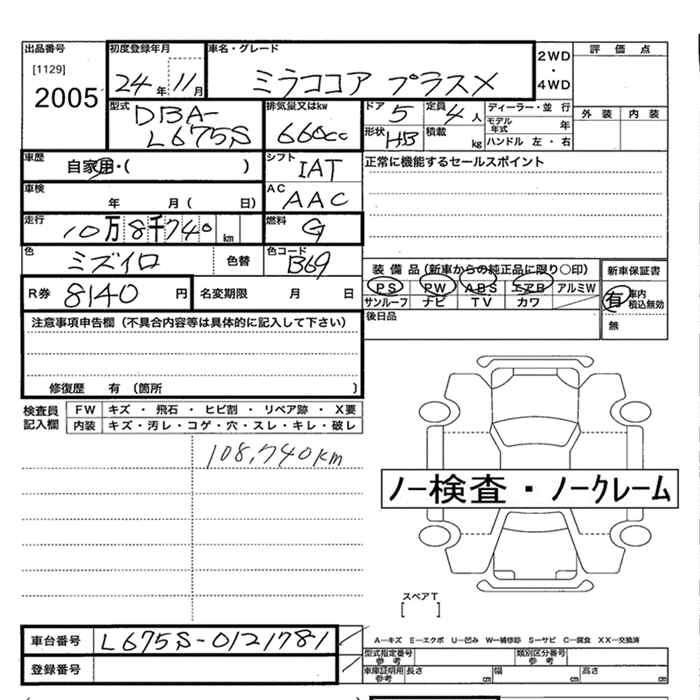 出品番号 初度登録年月 車名・グレード 2WD ・ 4WD 評価点
[1129] 2005 24年 11月 ミラココア プラスX
型式 DBA-L675S 排気量又はkw 660cc ドア 5 定員 4人 ディーラー・並行 外装 内装
形状 HB 積載 kg モデル年式 年
ハンドル 左・右
車歴 自家用・( ) シフト IAT 正常に機能するセールスポイント
車検 年 月( 日) AC AAC
走行 10万8千740km 燃料 G
色 ミズイロ 色替 色コード B69 装備品(新車からの純正品に限り○印) 新車保証書
R券 8140円 名変期限 月 日 PS PW ABS エアB アルミW 有 車内積込無効
サンルーフ ナビ TV カワ
注意事項申告欄(不具合内容等は具体的に記入して下さい) 後日品 無
修復歴 有(箇所 )
検査員記入欄 FW キズ・飛石・ヒビ割・リペア跡・X要
内装 キズ・汚レ・コゲ・穴・スレ・キレ・破レ
108,740km
ノー検査・ノークレーム
スペアT
[ ]
車台番号 L675S-0121781 A-キズ E-エクボ U-凹み W-補修跡 S-サビ C-腐食 XX-交換済
登録番号 型式指定番号 参考 類別区分番号 参考
車庫証明用 参考 長さ cm 幅 cm 高さ cm